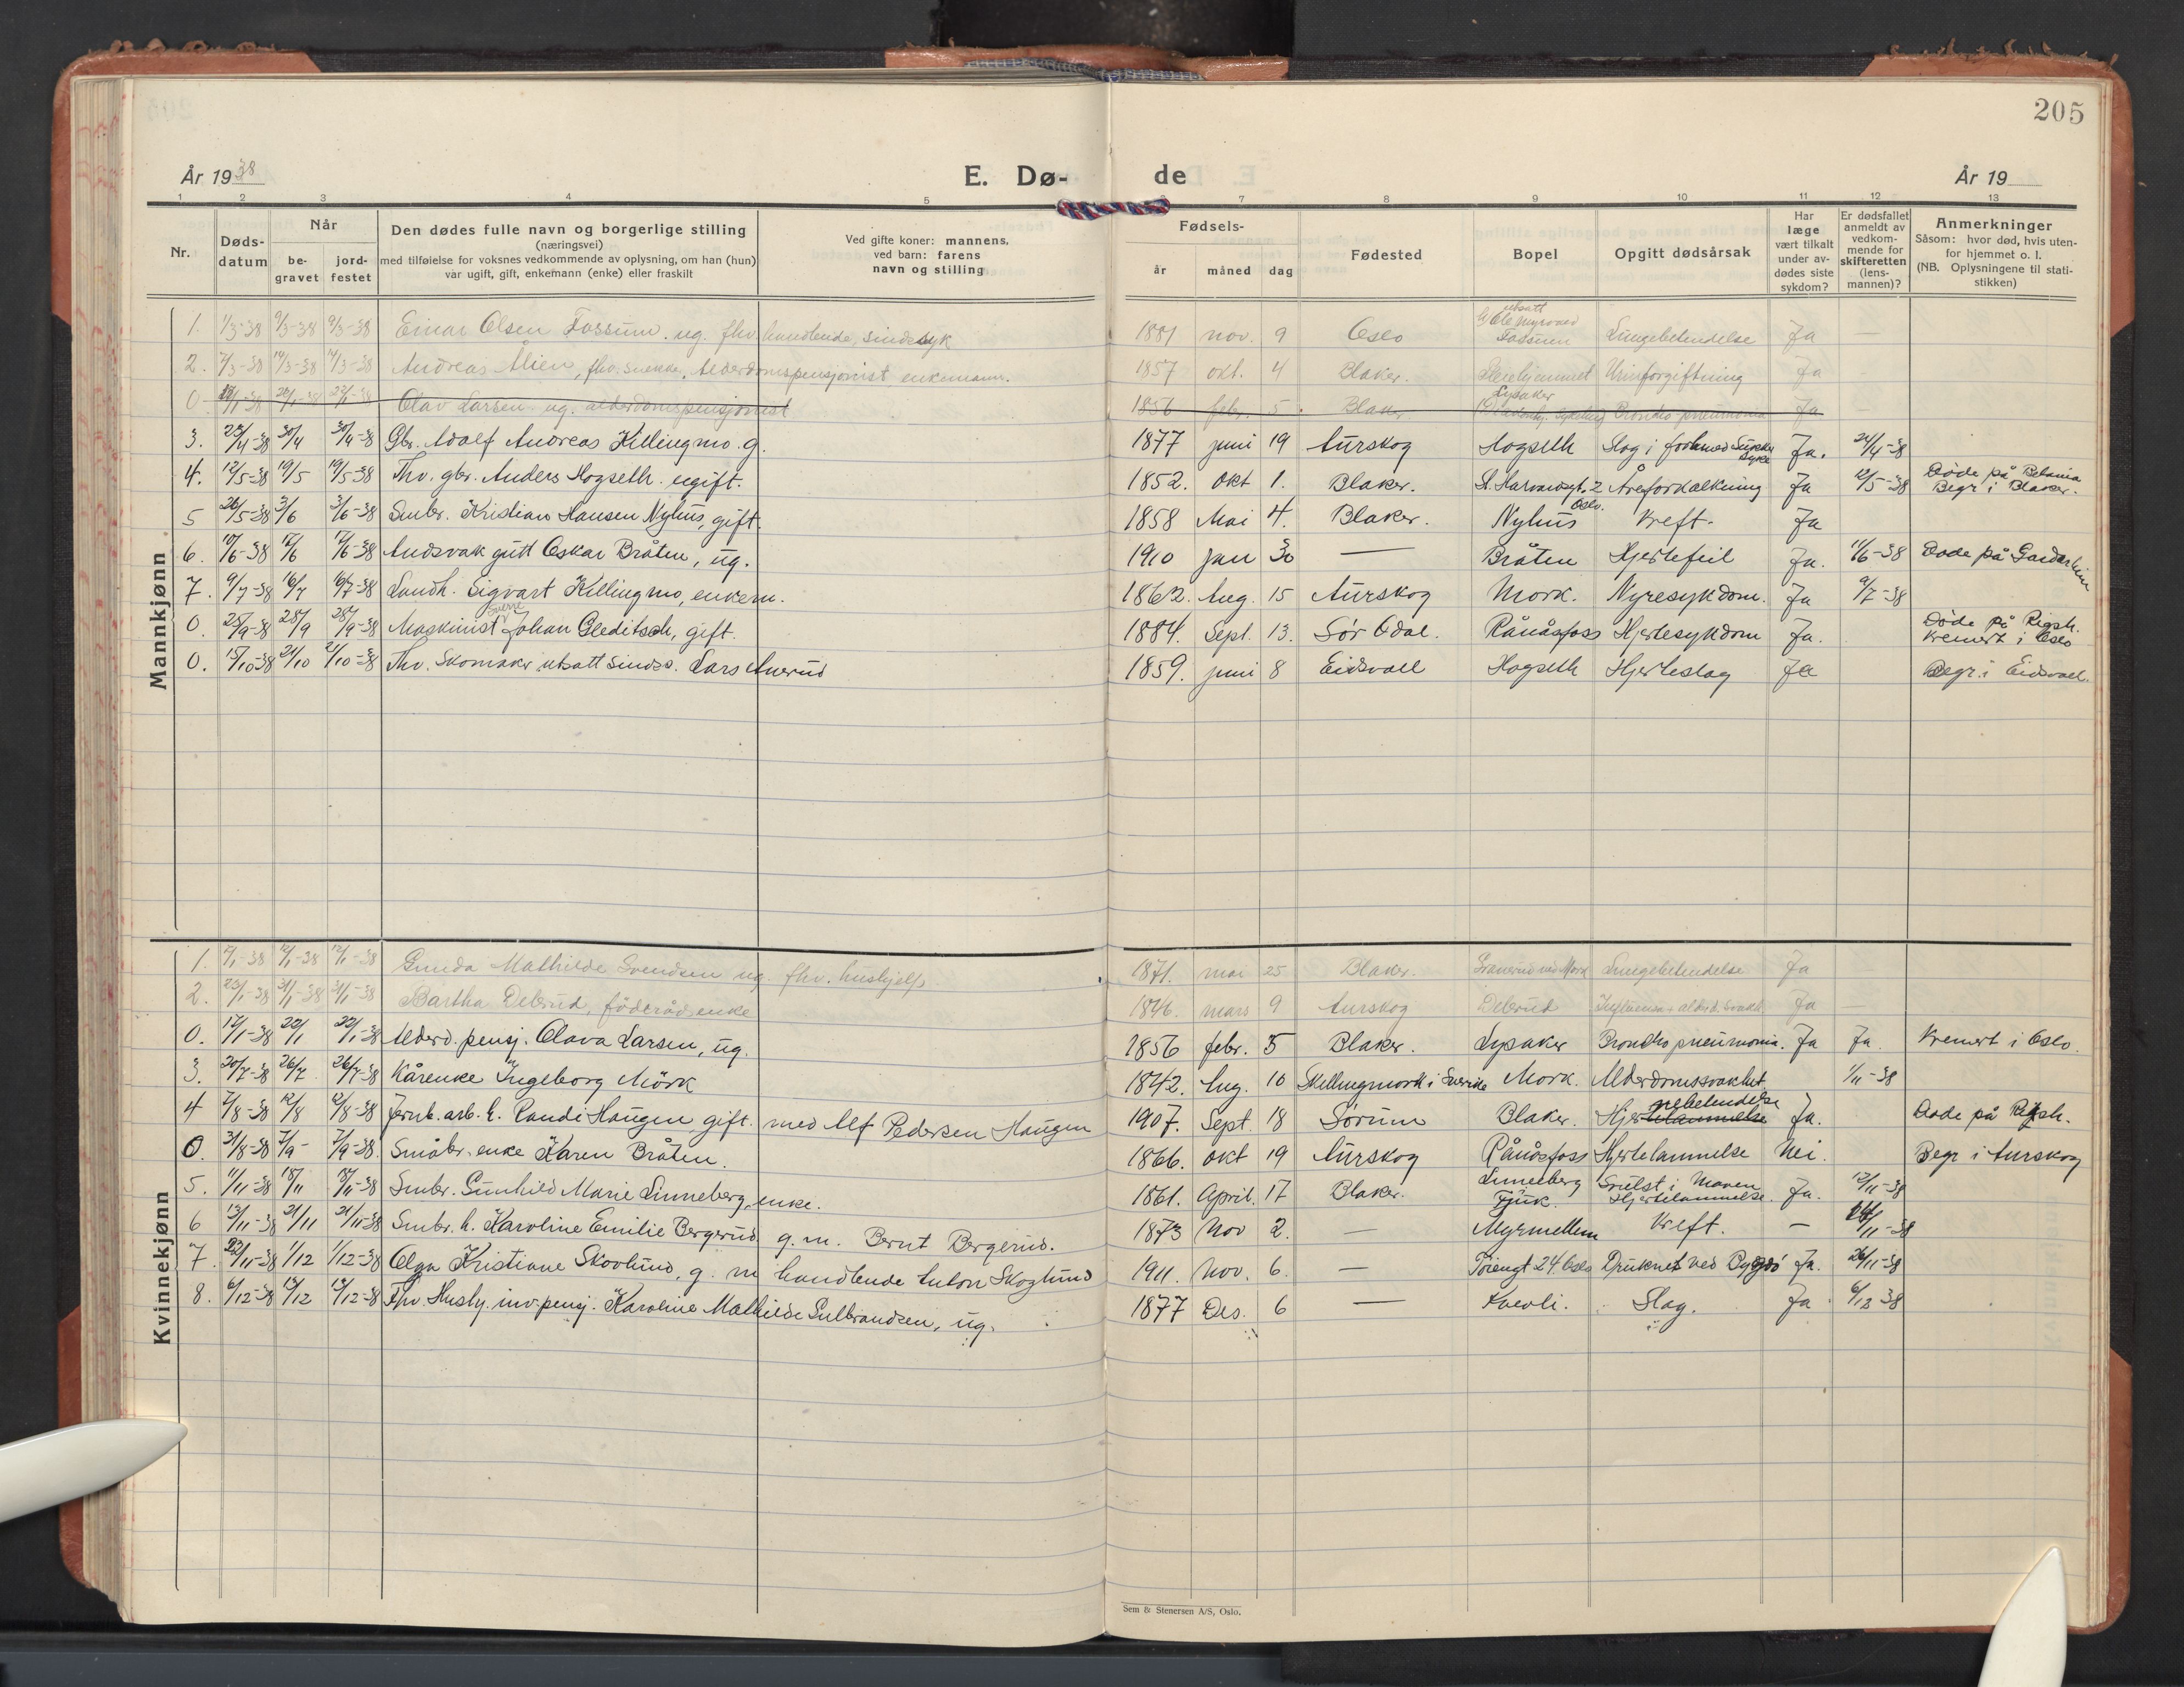 205
År 1938 E. Dø- de År 19
1 2 3 4 5 6 7 8 9 10 11 12 13
Nr. Døds-datum Når be-gravet jord-festet Den dødes fulle navn og borgerlige stilling (næringsvei) med tilføielse for voksnes vedkommende av oplysning, om han (hun) var ugift, gift, enkemann (enke) eller fraskilt Ved gifte koner: mannens, ved barn: farens navn og stilling Fødsels- år måned dag Fødested Bopel Opgitt dødsårsak Har læge vært tilkalt under av-dødes siste sykdom? Er dødsfallet anmeldt av vedkom-mende for skifteretten (lens-mannen)? Anmerkninger Såsom: hvor død, hvis uten-for hjemmet o. l. (NB. Oplysningene til stati-stikken)
Mannkjønn
1. 1/3-38 9/3-38 9/3-38 Einar Olsen Fossum, ug. fhv. handlende, sindssyk 1881 nov. 9 Oslo utsatt Fossum Lungebetendelse Ja
2. 7/3-38 14/3-38 14/3-38 Andreas Alien, fhv. snekker, Alderdomspensjonist enkemann. 1857 okt. 4 Blaker. Pleiehjemmet Urinforgiftning Ja
0 Olav Larsen ug. alderdomspensjonist 1856 febr. 5 Blaker Lysaker Broncho pneumonia Ja
3. 23/4-38 30/4 30/4-38 Gbr. Adolf Andreas Killingmo. g. 1877 juni 19 Aurskog Hogseth Slag i forb. med Sukkersyke Ja. 24/4-38
4. 12/5-38 19/5 19/5-38 Fhv. gbr. Anders Hogseth. ugift. 1852. okt 1. Blaker. St. Harvardsgt. 2 Oslo. Åreforkalkning Ja 12/5-38 Døde på Betania Begr i Blaker.
5 26/5-38 3/6 3/6-38 Smbr. Kristian Hansen Nyhus, gift. 1858 Mai 4. Blaker. Nyhus Kreft. Ja
6. 10/6-38 17/6 17/6-38 Åndsvak gutt Oskar Bråten, ug. 1910 jan 30 — Bråten Hjertefeil Ja. 11/6-38 Døde på Gardarheim
7. 9/7-38 16/7 16/7-38 Landh. Sigvart Killingmo, enkem. 1862. Aug. 15 Aurskog Mork. Nyresykdom. Ja 9/7-38
0. 25/9-38 28/9 28/9-38 Maskinist Sverre Johan Gleditsch, gift. 1884. Sept. 13. Sør Odal. Rånåsfoss Hjertesykdom Ja. Døde på Rigsh. Kremert i Oslo
0. 15/10-38 21/10 21/10-38 Fhv. Skomaker utsatt sindss. Lars Anerud 1859. juni 8 Eidsvoll Hogseth Hjerteslag Ja Begr. i Eidsvoll.
Kvinnekjønn
1. 7/1-38 12/1-38 12/1-38 Gunda Mathilde Svendsen ug. fhv. hushjelp. 1871. mai 25 Blaker. Granerud ved Mork Lungebetendelse Ja
2. 25/1-38 31/1-38 31/1-38 Bartha Delerud, föderådsenke 1846. mars 9 Aurskog Delerud Influensa + alderd. svakh. Ja
0. 17/1-38 22/1 22/1-38 Alderd. pensj. Olava Larsen, ug. 1856 febr. 5 Blaker. Lysaker Broncho pneumonia. Ja Ja Kremert i Oslo.
3. 20/7-38 26/7 26/7-38 Kårenke Ingeborg Mörk 1842. Aug. 10 Skillingmork i Sverige Mork. Alderdomssvakhet 1/11-38
4 7/8-38 12/8 12/8-38 Jernb. arb. h. Randi Haugen gift. med Alf Pedersen Haugen 1907. Sept. 18 Sørum Blaker. Hjernebetendelse Ja. Døde på Rigsh.
0. 31/8-38 7/9 7/9-38. Småbr. enke Karen Bråten. 1866. okt 19 Aurskog Rånåsfoss Hjertelammelse Nei. Begr i Aurskog
5. 11/11-38 18/11 18/11-38 Smbr. Gunhild Marie Linneberg, enke. 1861. April. 17 Blaker. Linneberg Fjuk. Svulst i Maven Hjertelammelse. Ja. 12/11-38
6 13/11-38 21/11 21/11-38 Smbr. h. Karoline Emilie Bergerud g. m. Bernt Bergerud. 1873 Nov 2. — Myrmellem Kreft. — 14/11-38
7. 23/11-38 1/12 1/12-38 Olga Kristiane Skovlund, g. m handlende Anton Skoglund 1911. Nov. 6. — Töiengt 24 Oslo Druknet ved Bygdö Ja. 26/11-38
8. 6/12-38 13/12 13/12-38 Fhv. Hushj. inv. pensj. Karoline Mathilde Gulbrandsen, ug. 1877 Des. 6 — Kvevli. Slag. Ja 6/12 38
Sem & Stenersen A/S, Oslo.